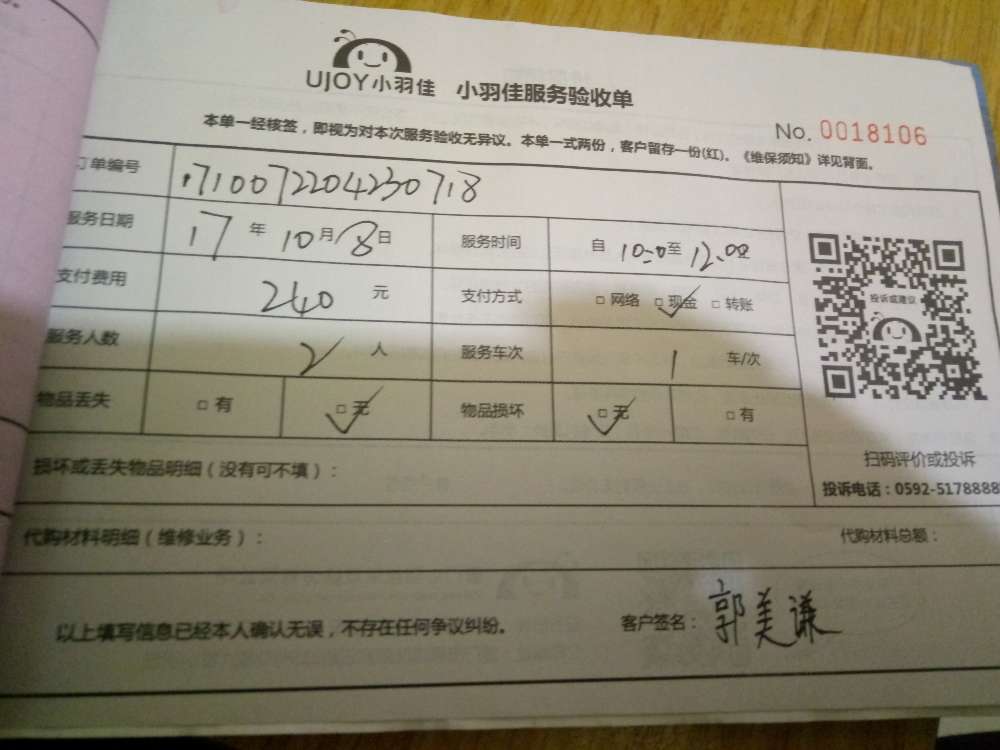 UJOY小羽佳 小羽佳服务验收单
No. 0018106
本单一经核签，即视为对本次服务验收无异议。本单一式两份，客户留存一份(红)。《维保须知》详见背面。
订单编号 171007220423071８
服务日期 17 年 10 月 8 日 服务时间 自 10:00 至 12:00
支付费用 240 元 支付方式 □ 网络 □ 现金 □ 转账
服务人数 2 人 服务车次 1 车/次
物品丢失 □ 有 □ 无 物品损坏 □ 无 □ 有
投诉或建议
扫码评价或投诉
投诉电话：0592-5178888
损坏或丢失物品明细（没有可不填）：
代购材料明细（维修业务）： 代购材料总额：
以上填写信息已经本人确认无误，不存在任何争议纠纷。 客户签名：郭美谦